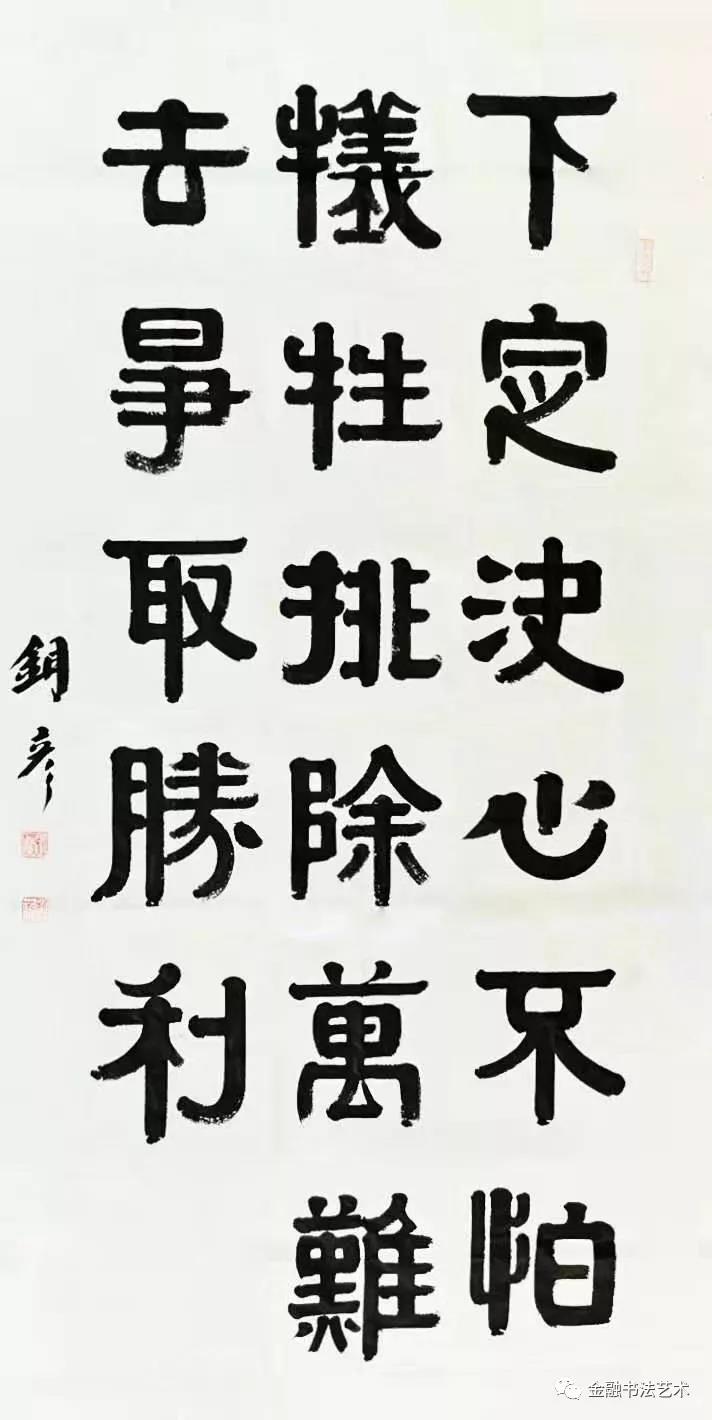 下定決心不怕
犧牲排除萬難
去爭取勝利
彥
金融书法艺术